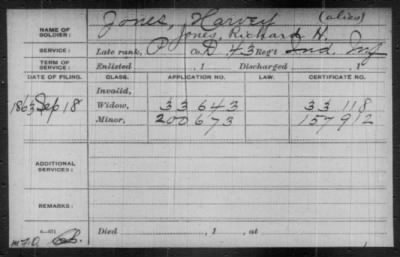 Jones, Harvey (alias)
NAME OF SOLDIER: Jones, Richard H.
SERVICE: Late rank, P Co. D 43 Reg't Ind. Inf
TERM OF SERVICE: Enlisted , 1 Discharged , 1
DATE OF FILING. CLASS. APPLICATION NO. LAW. CERTIFICATE NO.
Invalid,
1863 Sep 18 Widow, 33 643 33 118
Minor, 200 673 157 912
ADDITIONAL SERVICES:
REMARKS:
Died , 1 , at